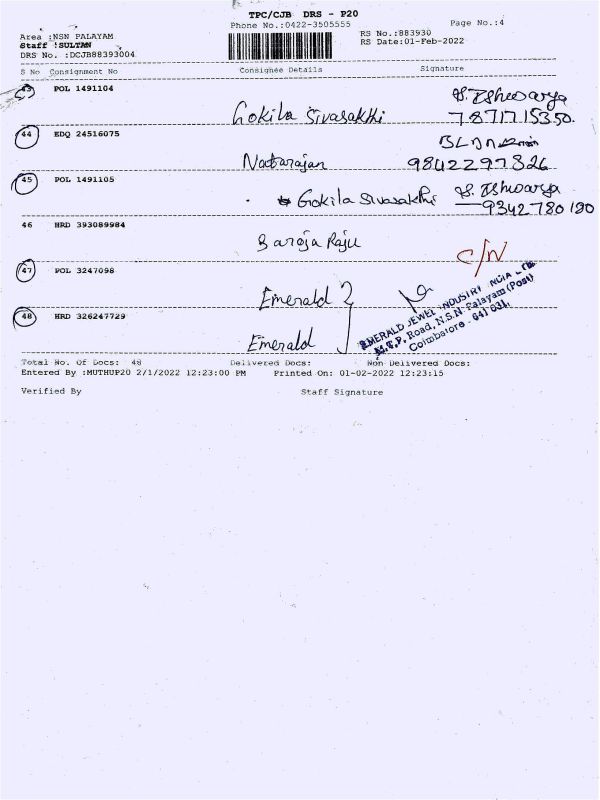 TPC/CJB DRS - P20
Phone No.:0422-3505555
Page No.:4
Area :NSN PALAYAM
Staff :SULTAN
DRS No. :DCJB88393004
RS No.:883930
RS Date:01-Feb-2022
S No Consignment No Consignee Details Signature
43 POL 1491104 Gokila Sivasakthi S. Eshwarya
7871715350.
44 EDQ 24516075 Natarajan
9842297826
45 POL 1491105 Gokila Sivasakthi S. Eshwarya
9342780190
46 HRD 393089984 Saroja Raju C/N
47 POL 3247098 Emerald
48 HRD 326247729 Emerald
EMERALD JEWEL INDUSTRY INDIA LTD.
M.T.P. Road, N.S.N. Palayam (Post)
Coimbatore - 641 031.
Total No. Of Docs: 48 Delivered Docs: Non Delivered Docs:
Entered By :MUTHUP20 2/1/2022 12:23:00 PM Printed On: 01-02-2022 12:23:15
Verified By Staff Signature